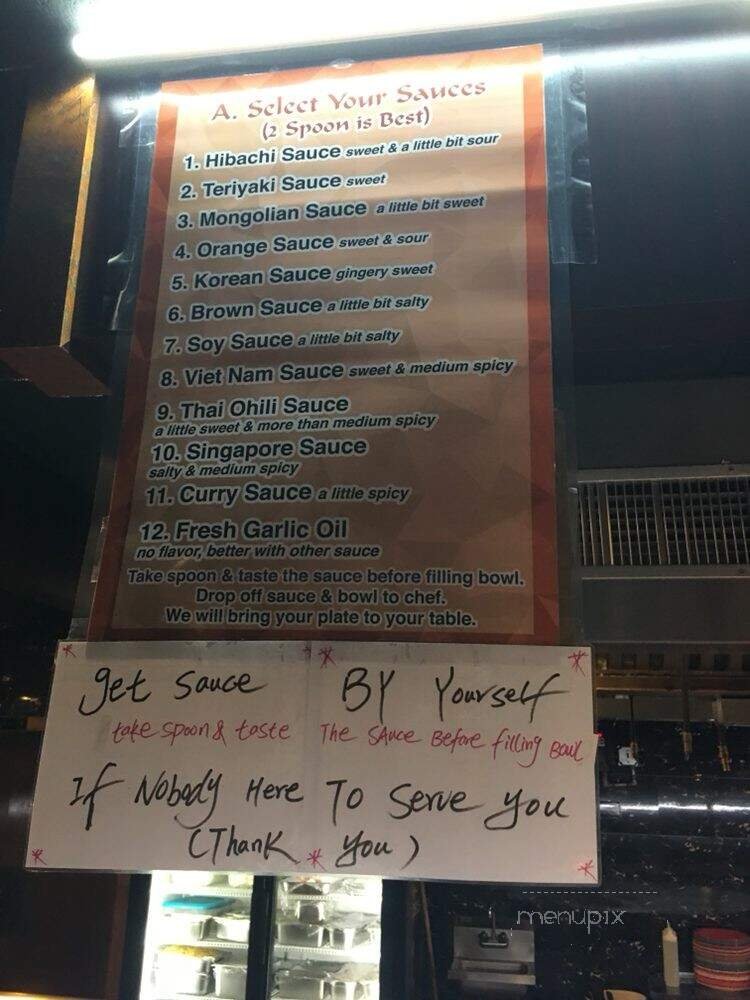 A. Select Your Sauces
(2 Spoon is Best)
1. Hibachi Sauce sweet & a little bit sour
2. Teriyaki Sauce sweet
3. Mongolian Sauce a little bit sweet
4. Orange Sauce sweet & sour
5. Korean Sauce gingery sweet
6. Brown Sauce a little bit salty
7. Soy Sauce a little bit salty
8. Viet Nam Sauce sweet & medium spicy
9. Thai Ohili Sauce
a little sweet & more than medium spicy
10. Singapore Sauce
salty & medium spicy
11. Curry Sauce a little spicy
12. Fresh Garlic Oil
no flavor, better with other sauce
Take spoon & taste the sauce before filling bowl.
Drop off sauce & bowl to chef.
We will bring your plate to your table.
get Sauce BY Yourself
take spoon & taste The SAuce Before filling Bowl
If Nobody Here To Serve you
(Thank you)
menupix